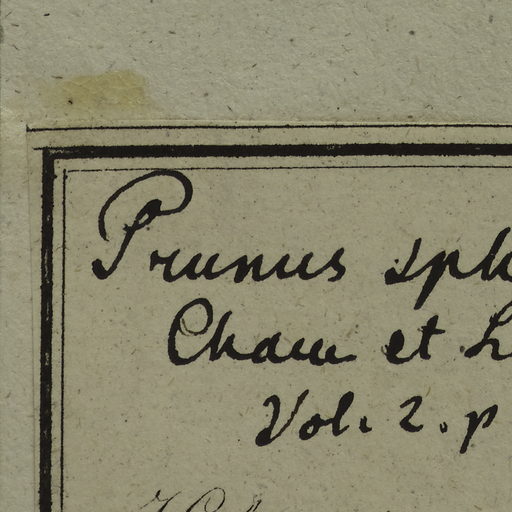 Prunus sph
Cham et L
Vol. 2. p